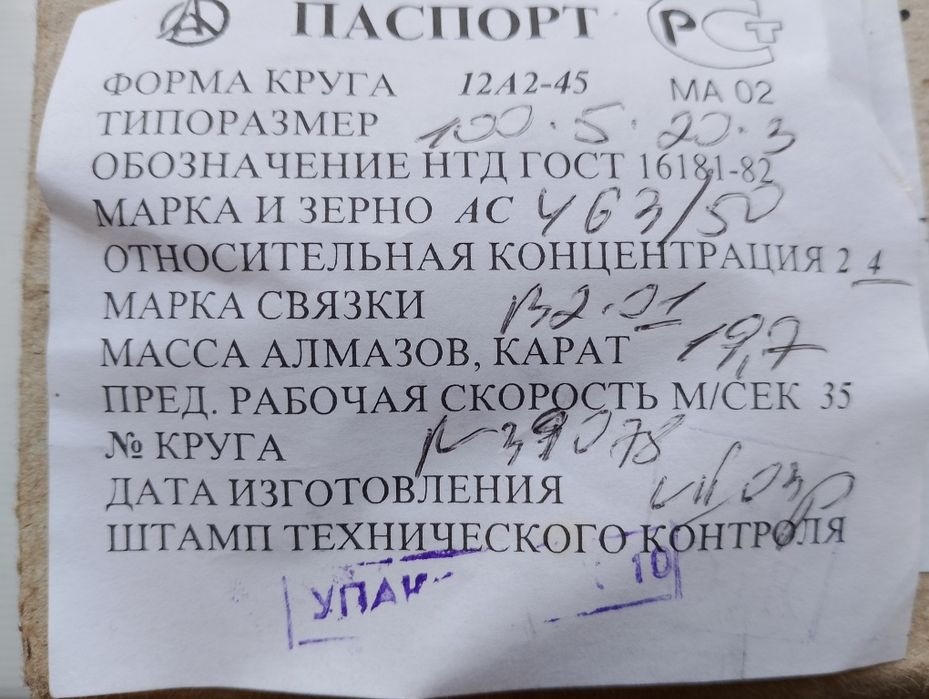 ПАСПОРТ
ФОРМА КРУГА 12А2-45 МА 02
ТИПОРАЗМЕР 100·5·20·3
ОБОЗНАЧЕНИЕ НТД ГОСТ 16181-82
МАРКА И ЗЕРНО АС 4 63/50
ОТНОСИТЕЛЬНАЯ КОНЦЕНТРАЦИЯ 2 4
МАРКА СВЯЗКИ В2-01
МАССА АЛМАЗОВ, КАРАТ 19,7
ПРЕД. РАБОЧАЯ СКОРОСТЬ М/СЕК 35
№ КРУГА
ДАТА ИЗГОТОВЛЕНИЯ
ШТАМП ТЕХНИЧЕСКОГО КОНТРОЛЯ
10